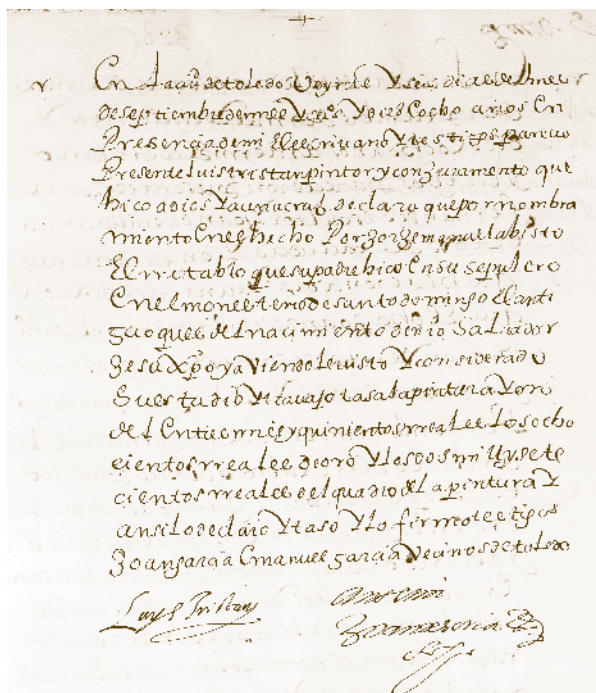 En la ciu de toledo Veynte Y seis dias del mes
de septiembre de mill Y seisº Y diez Y ocho anos En
Presençia de mi El escriuano Y testigos pareçio
Presente luis tristan pintor y con juramento que
hiço a dios Y a una cruz declaro que por nombra
miento En el hecho Por Jorje manuel a bisto
El rretablo que su padre hiço En su sepulcro
En el monesterio de santo domingo El anti
guo ques del naçimiento de nro Saluador
Jesu Xpo y aViendole uisto Y considerado
Su estudio Y trauajo tasa la pintura Y oro
del En tres mil y quinientos rreales los ocho
cientos rreales de oro Y los dos mill y sete
cientos rreales del quadro de la pintura Y
ansi lo declaro Y taso Y lo firmo tesºtigos
Joan garçia E manuel garçia Veçinos de toledo
Luys Tristan
Ante mi